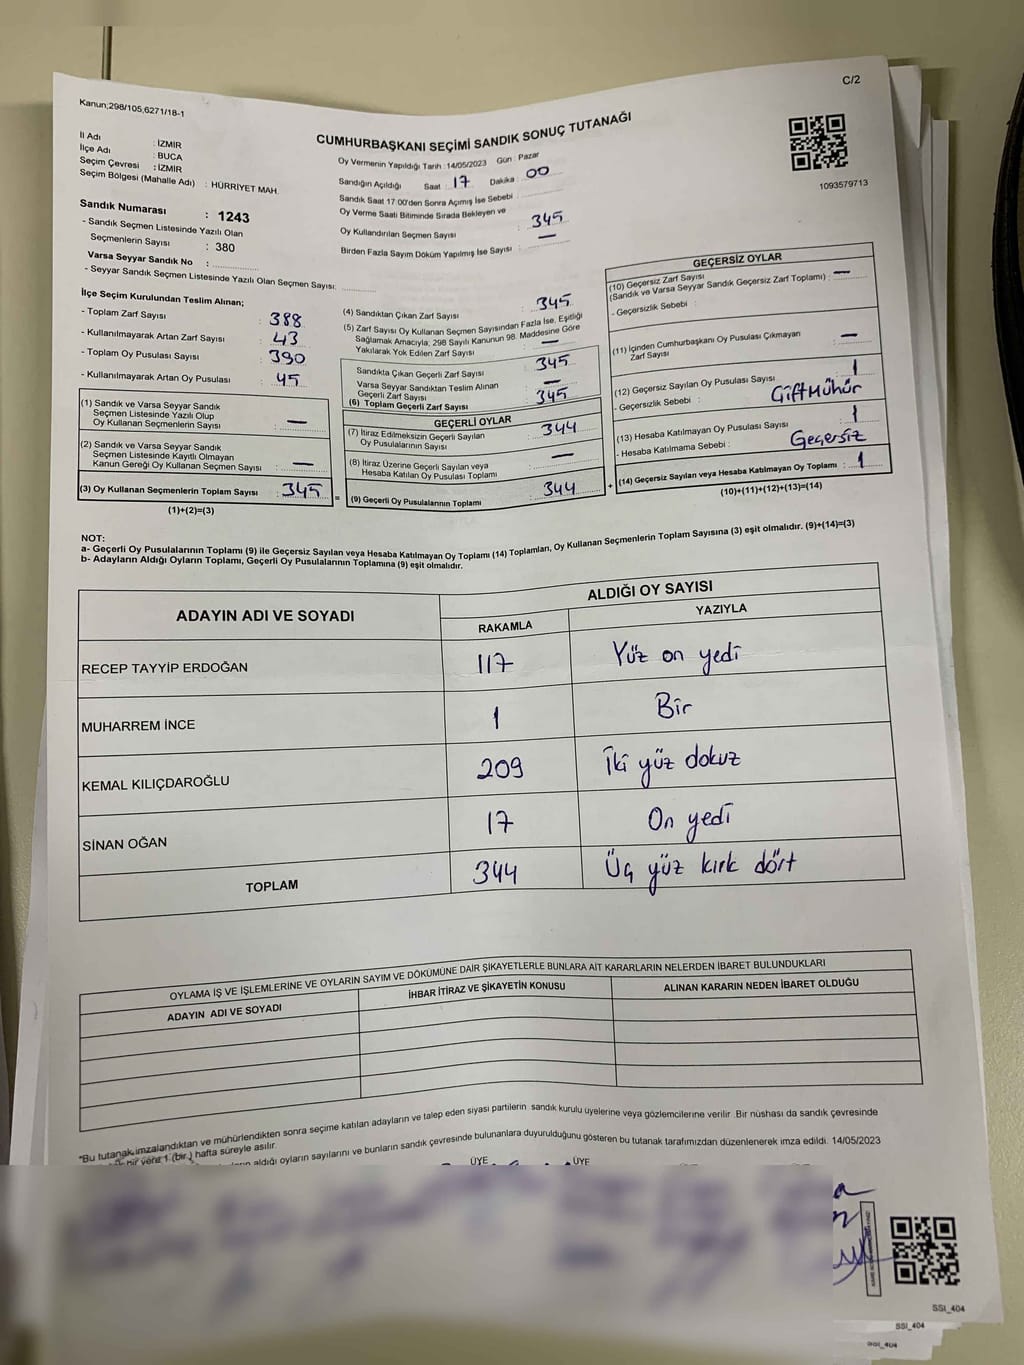 C/2
Kanun;298/105;6271/18-1
CUMHURBAŞKANI SEÇİMİ SANDIK SONUÇ TUTANAĞI
İl Adı : İZMİR
İlçe Adı : BUCA
Seçim Çevresi : İZMİR
Seçim Bölgesi (Mahalle Adı) : HÜRRİYET MAH.
Oy Vermenin Yapıldığı Tarih : 14/05/2023 Gün : Pazar
Sandığın Açıldığı Saat 17 Dakika 00
Sandık Saat 17:00'den Sonra Açımış İse Sebebi
Oy Verme Saati Bitiminde Sırada Bekleyen ve
Oy Kullandırılan Seçmen Sayısı : 345
Birden Fazla Sayım Döküm Yapılmış İse Sayısı : —
1093579713
Sandık Numarası : 1243
- Sandık Seçmen Listesinde Yazılı Olan
Seçmenlerin Sayısı : 380
Varsa Seyyar Sandık No :
- Seyyar Sandık Seçmen Listesinde Yazılı Olan Seçmen Sayısı:
İlçe Seçim Kurulundan Teslim Alınan;
- Toplam Zarf Sayısı : 388
- Kullanılmayarak Artan Zarf Sayısı : 43
- Toplam Oy Pusulası Sayısı : 390
- Kullanılmayarak Artan Oy Pusulası : 45
(1) Sandık ve Varsa Seyyar Sandık
Seçmen Listesinde Yazılı Olup
Oy Kullanan Seçmenlerin Sayısı : —
(2) Sandık ve Varsa Seyyar Sandık
Seçmen Listesinde Kayıtlı Olmayan
Kanun Gereği Oy Kullanan Seçmen Sayısı : —
(3) Oy Kullanan Seçmenlerin Toplam Sayısı : 345 =
(1)+(2)=(3)
(4) Sandıktan Çıkan Zarf Sayısı : 345
(5) Zarf Sayısı Oy Kullanan Seçmen Sayısından Fazla İse, Eşitliği
Sağlamak Amacıyla; 298 Sayılı Kanunun 98. Maddesine Göre
Yakılarak Yok Edilen Zarf Sayısı : —
Sandıkta Çıkan Geçerli Zarf Sayısı : 345
Varsa Seyyar Sandıktan Teslim Alınan
Geçerli Zarf Sayısı : —
(6) Toplam Geçerli Zarf Sayısı : 345
GEÇERLİ OYLAR
(7) İtiraz Edilmeksizin Geçerli Sayılan
Oy Pusulasının Sayısı : 344
(8) İtiraz Üzerine Geçerli Sayılan veya
Hesaba Katılan Oy Pusulası Toplamı : —
(9) Geçerli Oy Pusulalarının Toplamı : 344 +
GEÇERSİZ OYLAR
(10) Geçersiz Zarf Sayısı
(Sandık ve Varsa Seyyar Sandık Geçersiz Zarf Toplamı) : —
- Geçersizlik Sebebi :
(11) İçinden Cumhurbaşkanı Oy Pusulası Çıkmayan
Zarf Sayısı : —
(12) Geçersiz Sayılan Oy Pusulası Sayısı : 1
- Geçersizlik Sebebi : ÇiftMühür
(13) Hesaba Katılmayan Oy Pusulası Sayısı : 1
- Hesaba Katılmama Sebebi : Geçersiz
(14) Geçersiz Sayılan veya Hesaba Katılmayan Oy Toplamı : 1
(10)+(11)+(12)+(13)=(14)
NOT:
a- Geçerli Oy Pusulalarının Toplamı (9) ile Geçersiz Sayılan veya Hesaba Katılmayan Oy Toplamı (14) Toplamları, Oy Kullanan Seçmenlerin Toplam Sayısına (3) eşit olmalıdır. (9)+(14)=(3)
b- Adayların Aldığı Oyların Toplamı, Geçerli Oy Pusulalarının Toplamına (9) eşit olmalıdır.
ADAYIN ADI VE SOYADI ALDIĞI OY SAYISI
RAKAMLA YAZIYLA
RECEP TAYYİP ERDOĞAN 117 Yüz on yedi
MUHARREM İNCE 1 Bir
KEMAL KILIÇDAROĞLU 209 İki yüz dokuz
SİNAN OĞAN 17 On yedi
TOPLAM 344 Üç yüz kırk dört
OYLAMA İŞ VE İŞLEMLERİNE VE OYLARIN SAYIM VE DÖKÜMÜNE DAİR ŞİKAYETLERLE BUNLARA AİT KARARLARIN NELERDEN İBARET BULUNDUKLARI
ADAYIN ADI VE SOYADI İHBAR İTİRAZ VE ŞİKAYETİN KONUSU ALINAN KARARIN NEDEN İBARET OLDUĞU
*Bu tutanak imzalandıktan ve mühürlendikten sonra seçime katılan adayların ve talep eden siyasi partilerin sandık kurulu üyelerine veya gözlemcilerine verilir. Bir nüshası da sandık çevresinde
bir yere 1 (bir) hafta süreyle asılır.
aldığı oyların sayılarını ve bunların sandık çevresinde bulunanlara duyurulduğunu gösteren bu tutanak tarafımızdan düzenlenerek imza edildi. 14/05/2023
ÜYE ÜYE
SSI_404
SSI_404
SSI_404